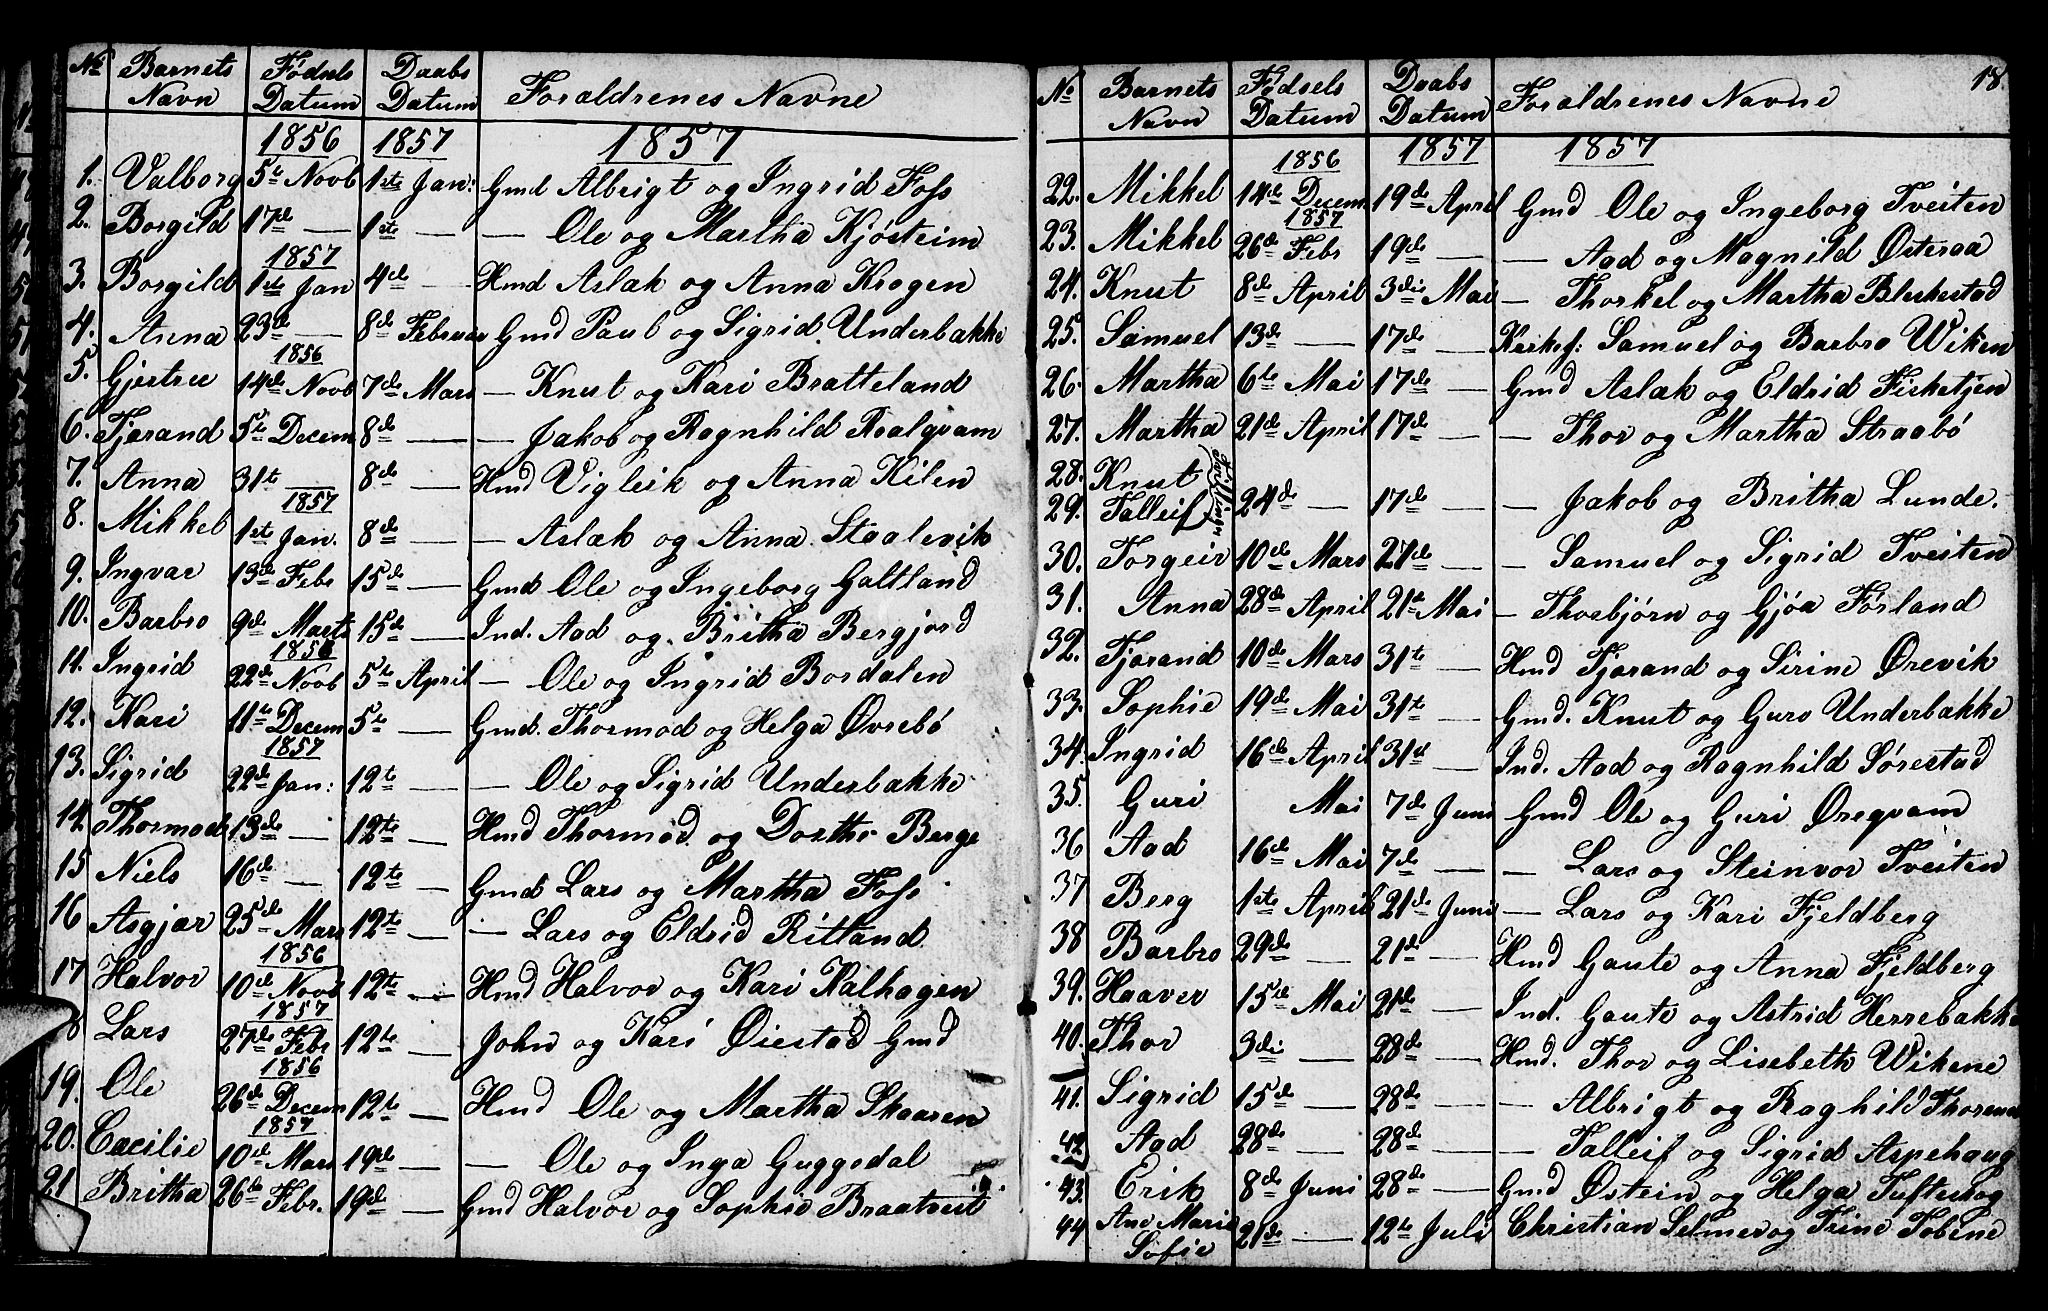 No Barnets Navn Fødsels Datum Daabs Datum Forældrenes Navne
1856 1857 1857
1. Valborg 5te Novb 1ste Jan: Gmd Albrigt og Ingrid Foss
2. Borgild 17de — 1ste — — Ole og Martha Kjøsteim
1857
3. Borgild 1ste Jan 4de — Hmd Aslak og Anna Krogen
4. Anna 23de — 8de Februar Gmd Paul og Sigrid Underbakke
1856
5. Gjertru 14de Novb 7de Mars — Knut og Kari Bratteland
6. Tjerand 5te Decem 8de — — Jakob og Ragnhild Roalqvam
7. Anna 31te — 8de — Hmd Vigleik og Anna Kilen
1857
8. Mikkel 1ste Jan. 8de — — Aslak og Anna Staalevik
9. Ingvar 13de Febr 15de — Gmd Ole og Ingeborg Galtland
10. Barbro 9de Marts 15de — Ind. Aad og Britha Bergjord
1856
11. Ingrid 22de Novb 5te April — Ole og Ingrid Bordalen
12. Kari 11te Decem 5te — Gmd. Thormod og Helga Øvrebø
1857
13. Sigrid 22de Jan: 12te — — Ole og Sigrid Underbakke
14. Thormod 13de — 12te — Hmd Thormod og Dorthe Berge
15 Niels 16de — 12te — Gmd Lars og Martha Foss
16 Asgjær 25de Mars 12te — — Lars og Eldrid Ritland
1856
17 Halvor 10de Novb 12te — Hmd Halvor og Kari Kalhagen
1857
8 Lars 27de Febr 12te — John og Kari Øiestad Gmd
1856
19. Ole 26de Decem 12te — Hmd Ole og Martha Skaaren
1857
20. Cæcilie 10de Mars 19de — — Ole og Inga Guggedal
21 Britha 26de Febr. 19de — Gmd Halvor og Sophie Braatveit
18.
No Barnets Navn Fødsels Datum Daabs Datum Forældrenes Navne
1856 1857 1857
22. Mikkel 14de Decem 19de April Gmd Ole og Ingeborg Tveiten
1857
23. Mikkel 26de Febr 19de — — Aad og Magnild Østeraa
24. Knut 8de April 3die Mai — Thorkel og Martha Bleskestad
25. Samuel 13de — 17de — Kirkes: Samuel og Barbro Wiken
26. Martha 6te Mai 17de — Gmd Aslak og Eldrid Fisketjen
27. Martha 21de April 17de — — Thor og Martha Straabø
28. Knut
29. Talleif 24de — 17de — — Jakob og Britha Lunde.
30. Torgeir 10de Mars 27de — — Samuel og Sigrid Tveiten
31. Anna 28de April 21te Mai — Thorbjørn og Gjøa Førland
32. Tjerand 10de Mars 31te — Hmd Tjerand og Sirine Ørevik
33. Sophie 19de Mai 31te — Gmd. Knut og Guro Underbakke
34. Ingrid 16de April 31te — Ind. Aad og Ragnhild Sørestad
35. Guri Mai 7de Juni Gmd Ole og Guri Øreqvam
36 Aad 16de Mai 7de — — Lars og Steinvor Tveiten
37 Berg 1ste April 21de Juni — Lars og Kari Fjeldberg
38 Barbro 29de — 21de — Hmd Gaute og Anna Fjeldberg
39. Haaver 15de Mai 21de — Ind. Gaute og Astrid Herrebakke
40. Thor 3die — 28de — Hmd. Thor og Lisebeth Wikene
41. Sigrid 15de — 28de — — Albrigt og Raghild
42 Aad 28de — 28de — — Talleif og Sigrid Aspehaug
43. Erik 8de Juni 28de — Gmd Østein og Helga Tufteskog
44 Ane Marie Sofie 21de — 12te Juli Christian Selmer og Trine Tobene